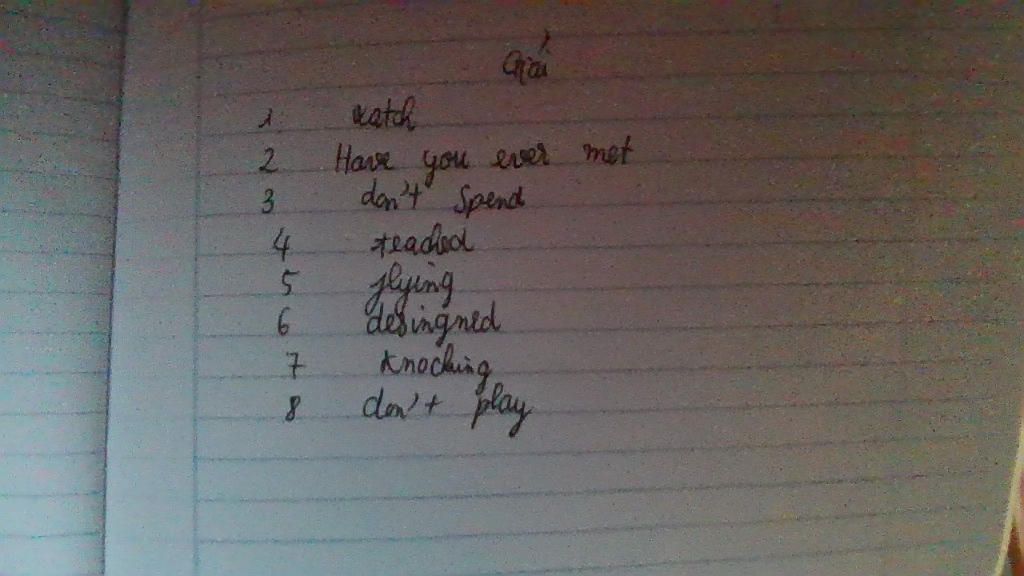 Giải
1 watch
2 Have you ever met
3 don't Spend
4 teached
5 flying
6 desingned
7 Knocking
8 don't play